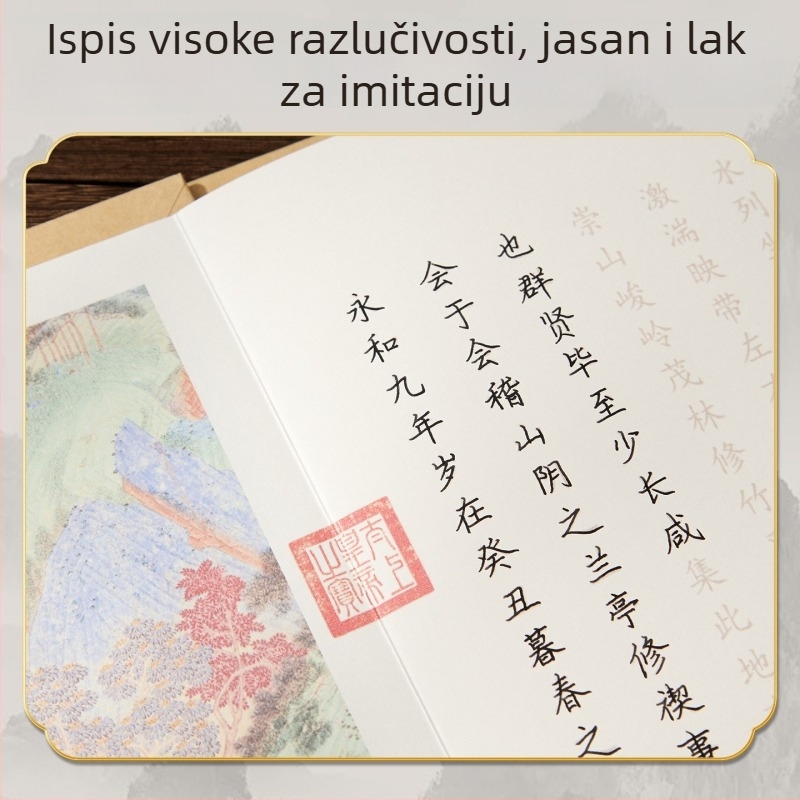 Ispis visoke razlučivosti, jasan i lak
za imitaciju
永和九年岁在癸丑暮春之
会于会稽山阴之兰亭修禊事
也群贤毕至少长咸集此地
崇山峻岭茂林修竹
激湍映带左
水列
太上
皇帝
之寶